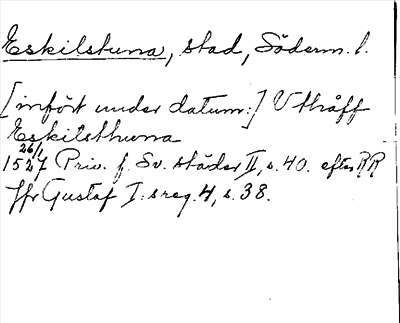 Eskilstuna, stad, Söderm. l.
[infört under datum:] Uthåff
Eskilsthuna
26/1
1527 Priv. f. Sv. städer II, s. 40. efter RR
Jfr Gustaf I:s reg. 4, s. 38.